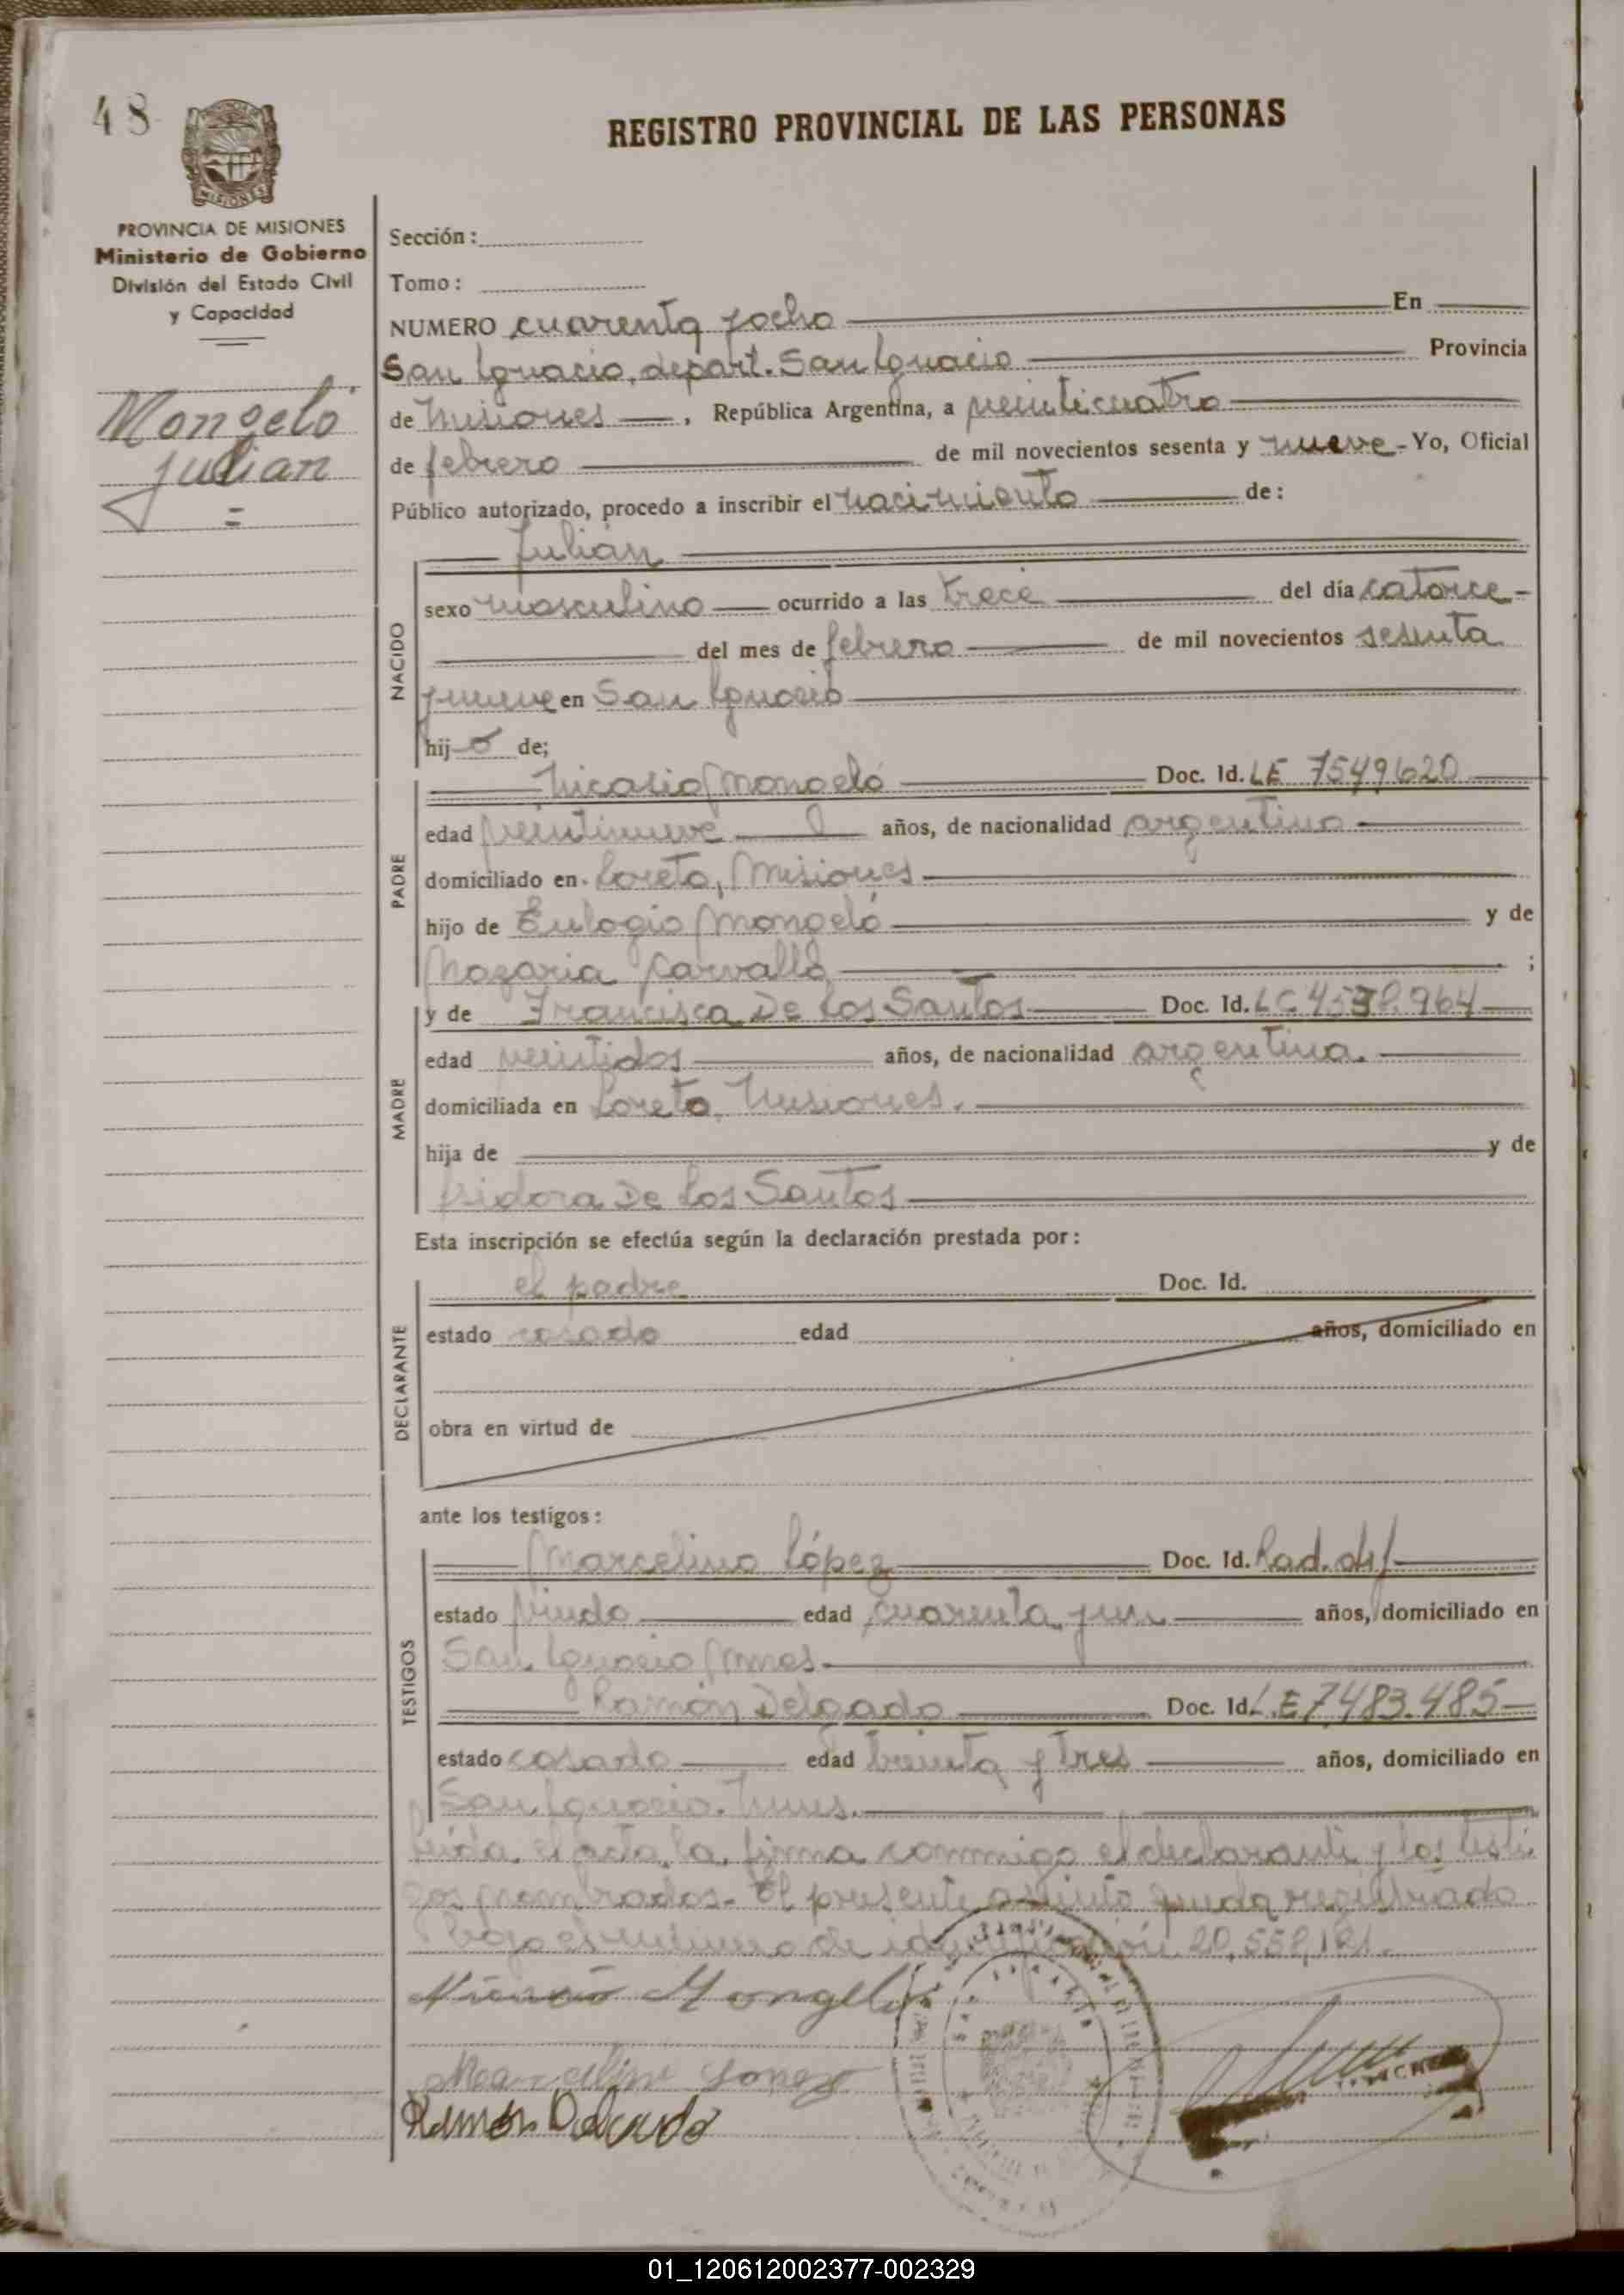 48
REGISTRO PROVINCIAL DE LAS PERSONAS
MISIONES
PROVINCIA DE MISIONES
Ministerio de Gobierno
División del Estado Civil
y Capacidad
Mongeló
Julian
Sección:
Tomo:
NUMERO cuarenta y ocho En
San Ignacio, depart. San Ignacio Provincia
de Misiones, República Argentina, a veinticuatro
de febrero de mil novecientos sesenta y nueve - Yo, Oficial
Público autorizado, procedo a inscribir el nacimiento de:
Julián
NACIDO
sexo masculino ocurrido a las trece del día catorce -
del mes de febrero de mil novecientos sesenta
y nueve en San Ignacio
hijo de;
PADRE
Nicasio Mongeló Doc. Id. LE 7549620
edad veintinueve años, de nacionalidad argentino
domiciliado en Loreto, Misiones
hijo de Eulogio Mongeló y de
Nazaria Carvallo ;
MADRE
y de Francisca De Los Santos Doc. Id. LC
edad veintidos años, de nacionalidad argentina.
domiciliada en Loreto, Misiones.
hija de y de
Isidora De Los Santos
Esta inscripción se efectúa según la declaración prestada por:
DECLARANTE
el padre Doc. Id.
estado casado edad años, domiciliado en
obra en virtud de
ante los testigos:
TESTIGOS
Marcelino López Doc. Id.
estado viudo edad cuarenta y un años, domiciliado en
San Ignacio Mnes.
Ramón Delgado Doc. Id. L.E 7.483.485
estado casado edad treinta y tres años, domiciliado en
San Ignacio. Mnes.
Leida el acta, la firma conmigo el declarante y los testi
gos nombrados.- El presente asiento queda registrado
bajo el número de identificación 20.559.121.
Mongelo
Marcelino Lopez
Ramón Delgado
01_120612002377-002329